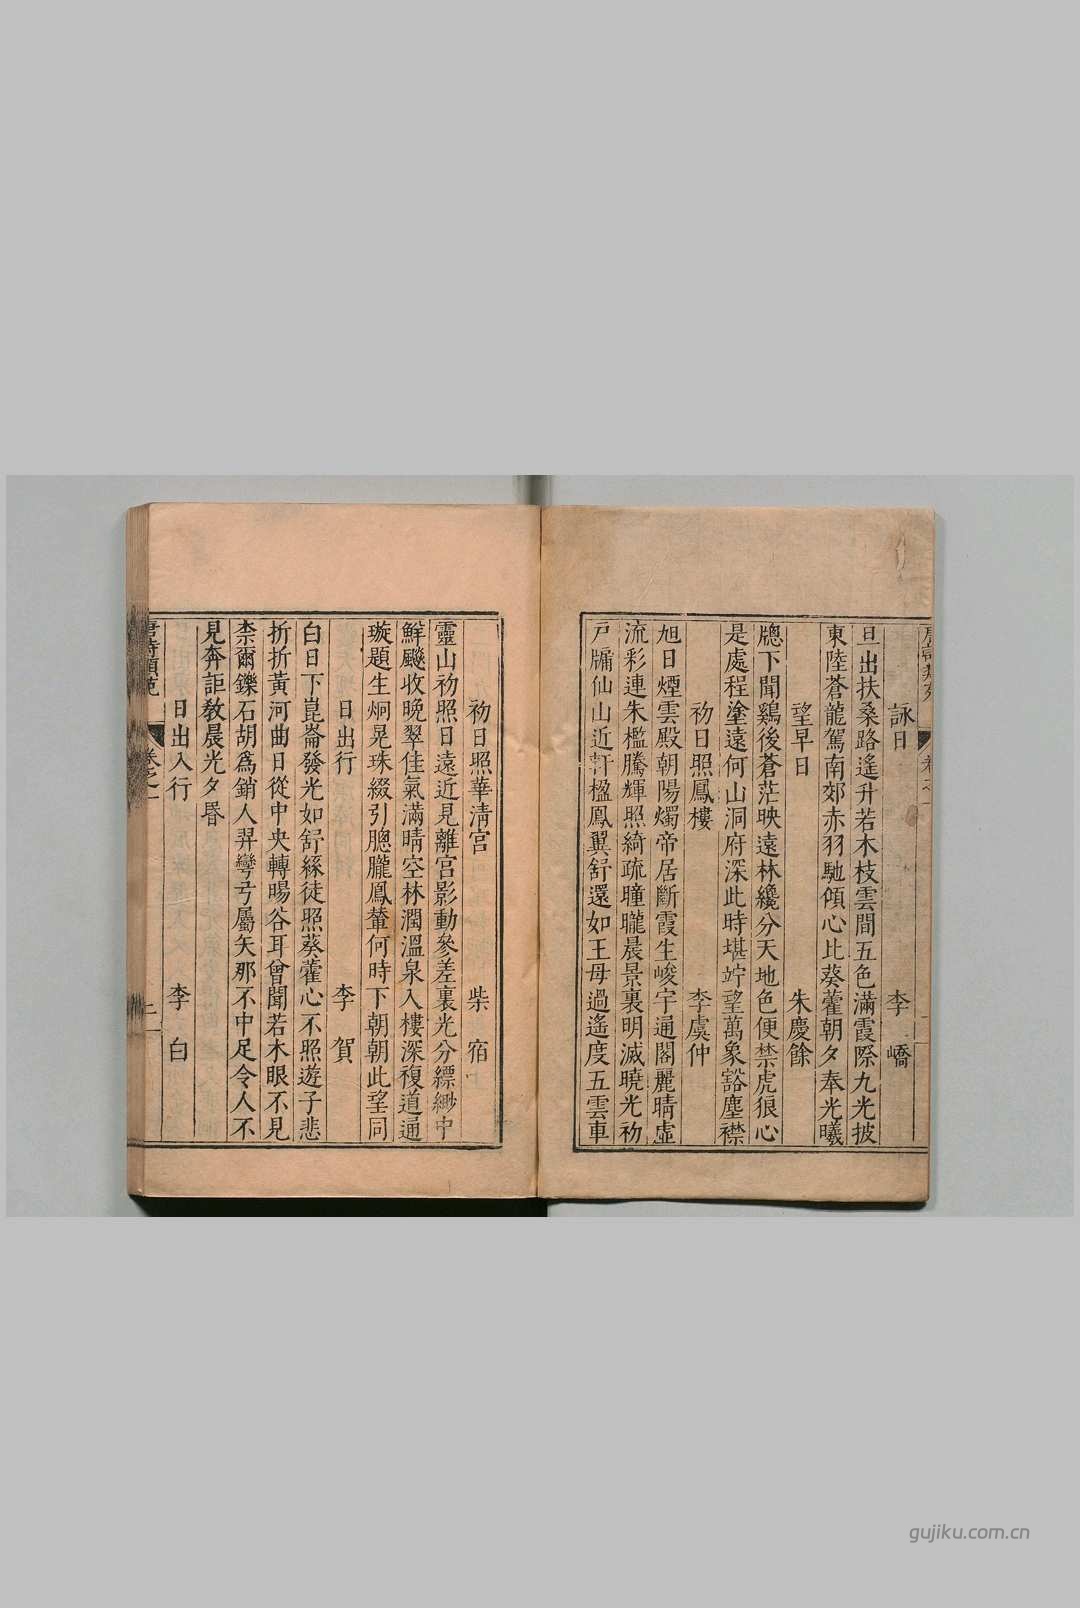 詠日 李嶠
旦出扶桑路遙升若木枝雲間五色滿霞際九光披
東陸蒼龍駕南郊赤羽馳傾心比葵藿朝夕奉光曦
望早日 朱慶餘
牕下聞鷄後蒼茫映遠林纔分天地色便禁虎狼心
是處程塗遠何山洞府深此時堪竚望萬象豁塵襟
初日照鳳樓 李虞仲
旭日煙雲殿朝陽燭帝居斷霞生峻宇通閣麗晴虛
流彩連朱檻騰輝照綺疏曈曨晨景裏明滅曉光初
戸牖仙山近軒楹鳳翼舒還如王母過遙度五雲車
初日照華清宮 柴宿
靈山初照日遠近見離宮影動參差裏光分縹緲中
鮮飈收晚翠佳氣滿晴空林潤溫泉入樓深複道通
璇題生炯晃珠綴引朧朧鳳輦何時下朝朝此望同
日出行 李賀
白日下崑崙發光如舒絲徒照葵藿心不照遊子悲
折折黃河曲日從中央轉暘谷耳曾聞若木眼不見
柰爾鑠石胡爲銷人羿彎弓屬矢那不中足令人不
見奔詎敎晨光夕昬
日出入行 李白
唐詩類苑 卷之一
gujiku.com.cn